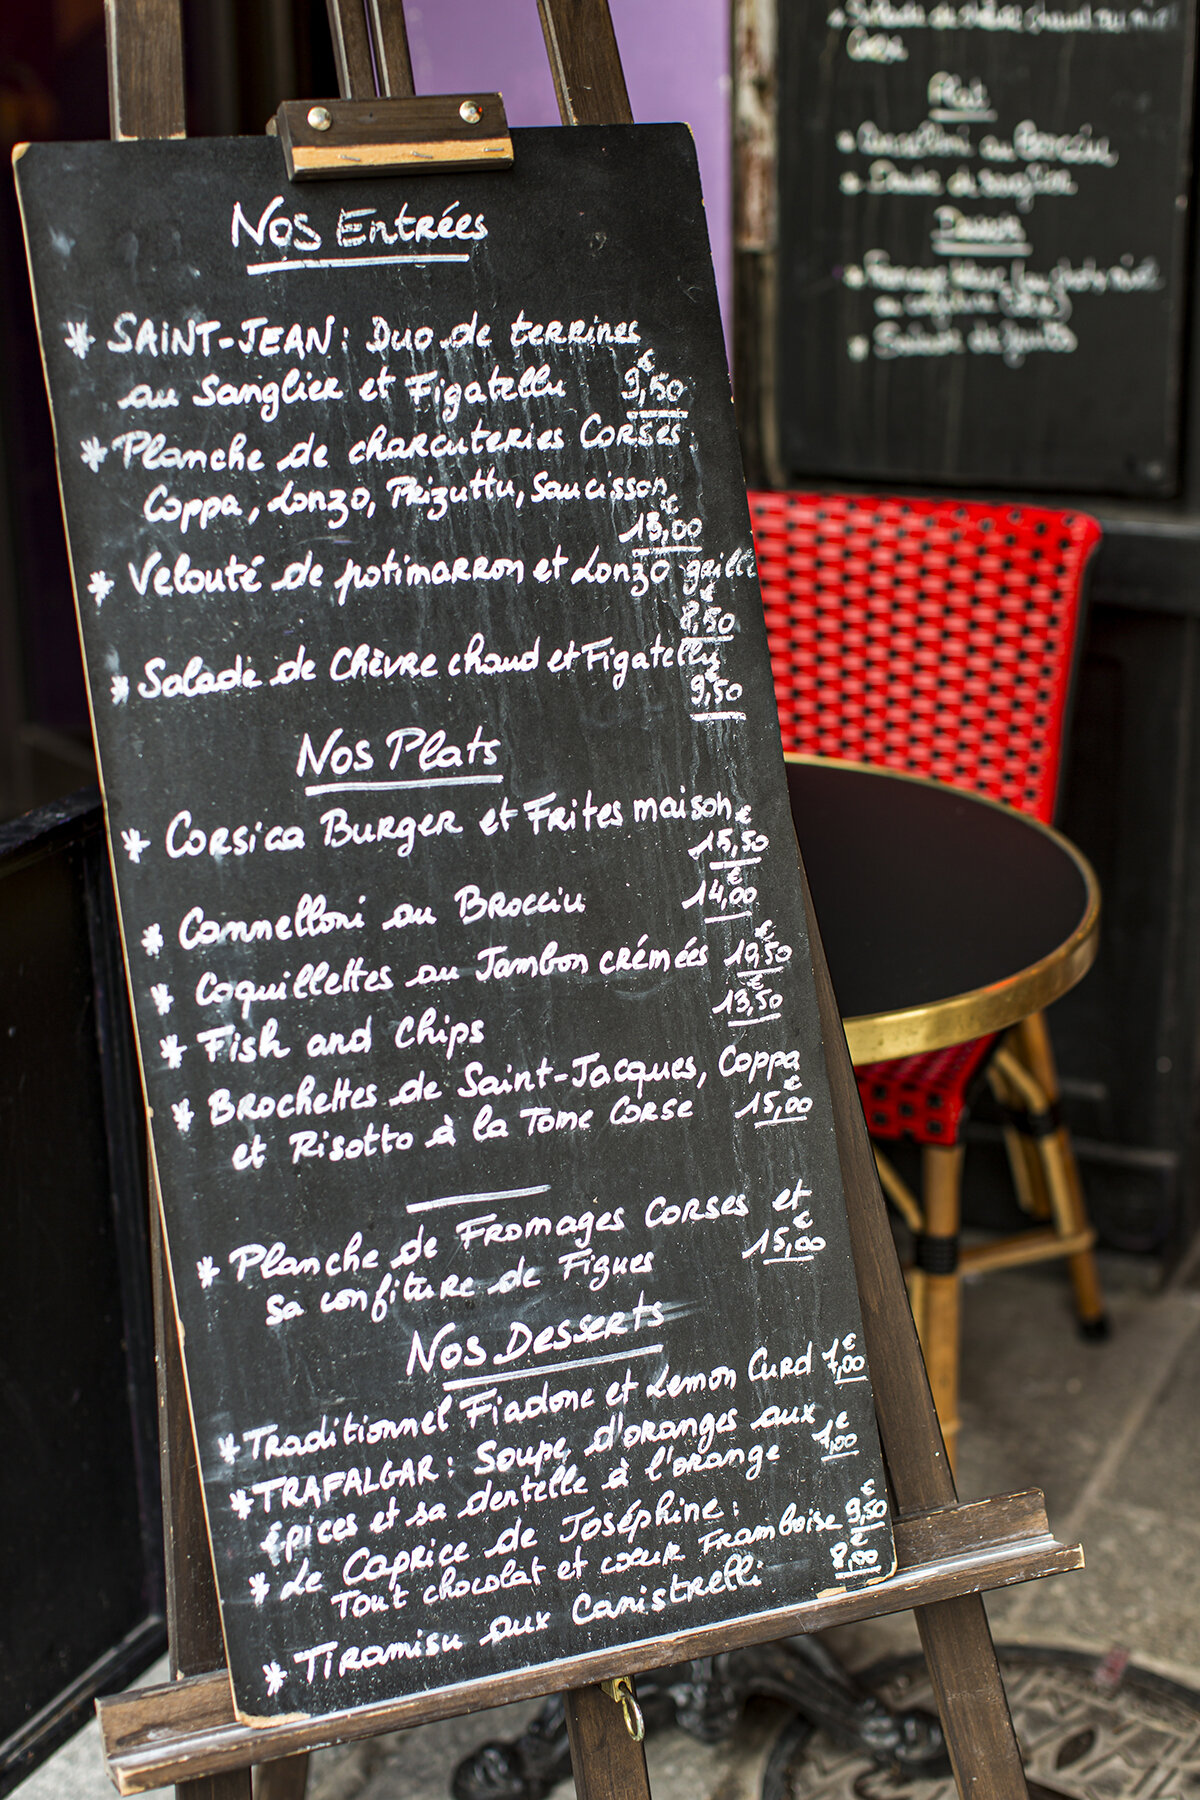 Nos Entrées
* SAINT-JEAN : Duo de terrines
au Sanglier et Figatellu 9,50 €
* Planche de charcuteries Corses,
Coppa, Lonzo, Prizuttu, Saucisson
€
* Velouté de potimarron et Lonzo grillé
8,50 €
* Salade de Chèvre chaud et Figatellu
9,50 €
Nos Plats
* Corsica Burger et Frites maison
15,50 €
* Cannelloni au Brocciu 14,00 €
* Coquillettes au Jambon crémées €
* Fish and Chips 13,50 €
* Brochettes de Saint-Jacques, Coppa
et Risotto à la Tome Corse 15,00 €
* Planche de Fromages Corses et
sa confiture de Figues 15,00 €
Nos Desserts
* Traditionnel Fiadone et Lemon Curd 7,00 €
* TRAFALGAR : Soupe d'oranges aux
épices et sa dentelle à l'orange €
* Le Caprice de Joséphine :
Tout chocolat et coeur Framboise 9,50 €
* Tiramisu aux Canistrelli 8,00 €
Plat
* Cannelloni au Brocciu
* Daube de sanglier
Dessert